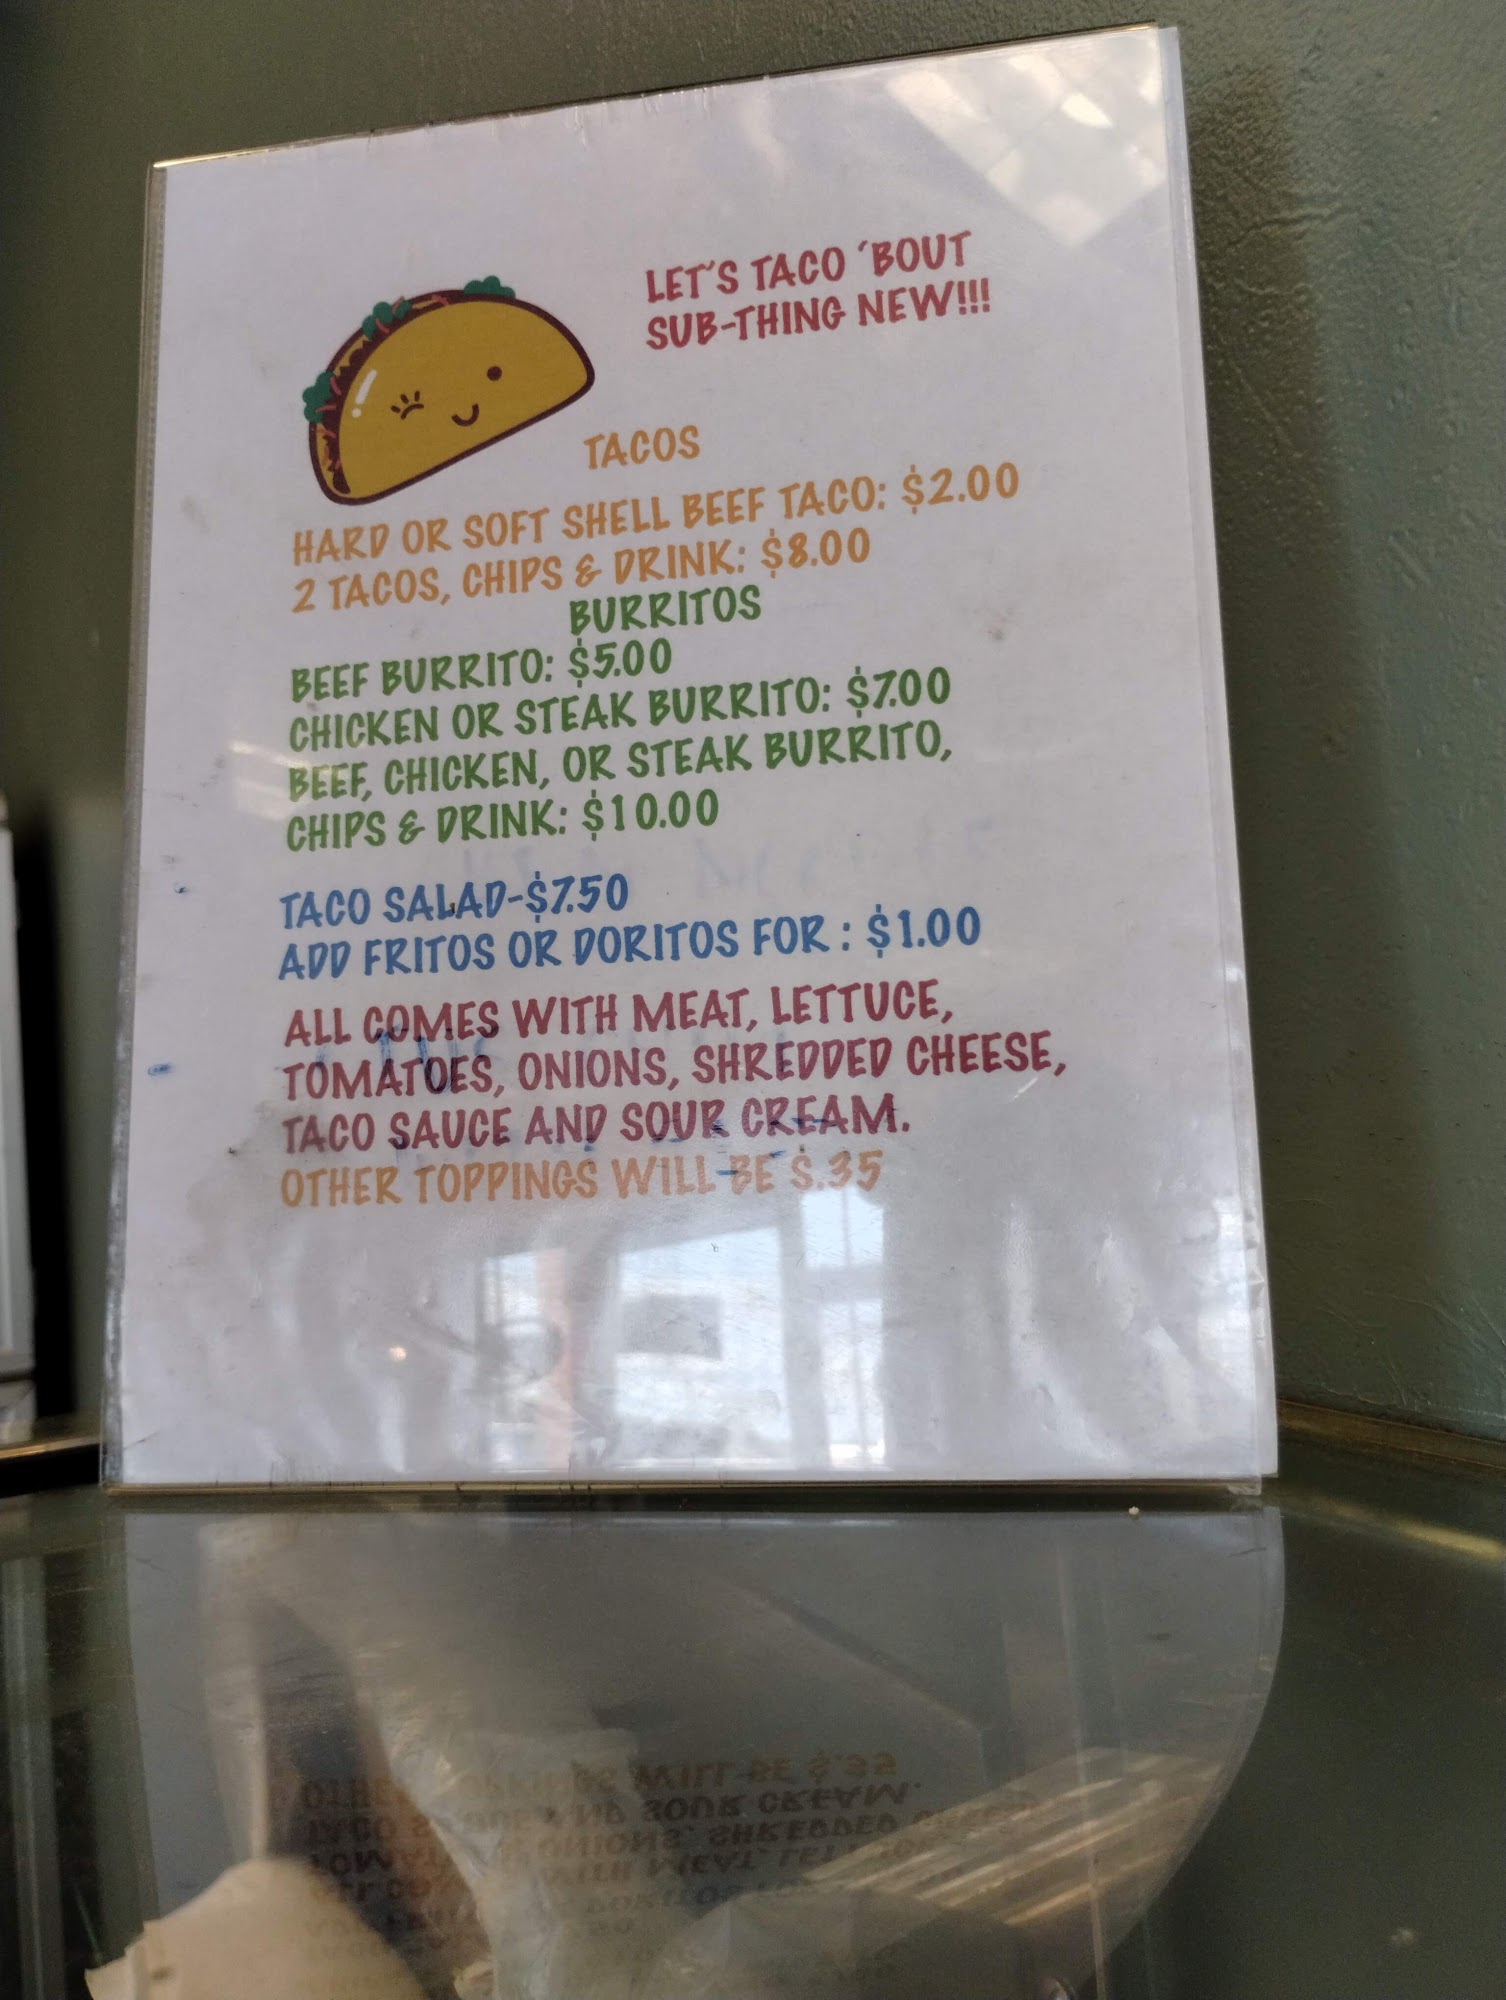 LET'S TACO 'BOUT
SUB-THING NEW!!!
TACOS
HARD OR SOFT SHELL BEEF TACO: $2.00
2 TACOS, CHIPS & DRINK: $8.00
BURRITOS
BEEF BURRITO: $5.00
CHICKEN OR STEAK BURRITO: $7.00
BEEF, CHICKEN, OR STEAK BURRITO,
CHIPS & DRINK: $10.00
TACO SALAD-$7.50
ADD FRITOS OR DORITOS FOR : $1.00
ALL COMES WITH MEAT, LETTUCE,
TOMATOES, ONIONS, SHREDDED CHEESE,
TACO SAUCE AND SOUR CREAM.
OTHER TOPPINGS WILL BE $.35